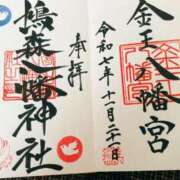 金王八幡宮
令和七年十一月
奉拝
鳩森八幡神社